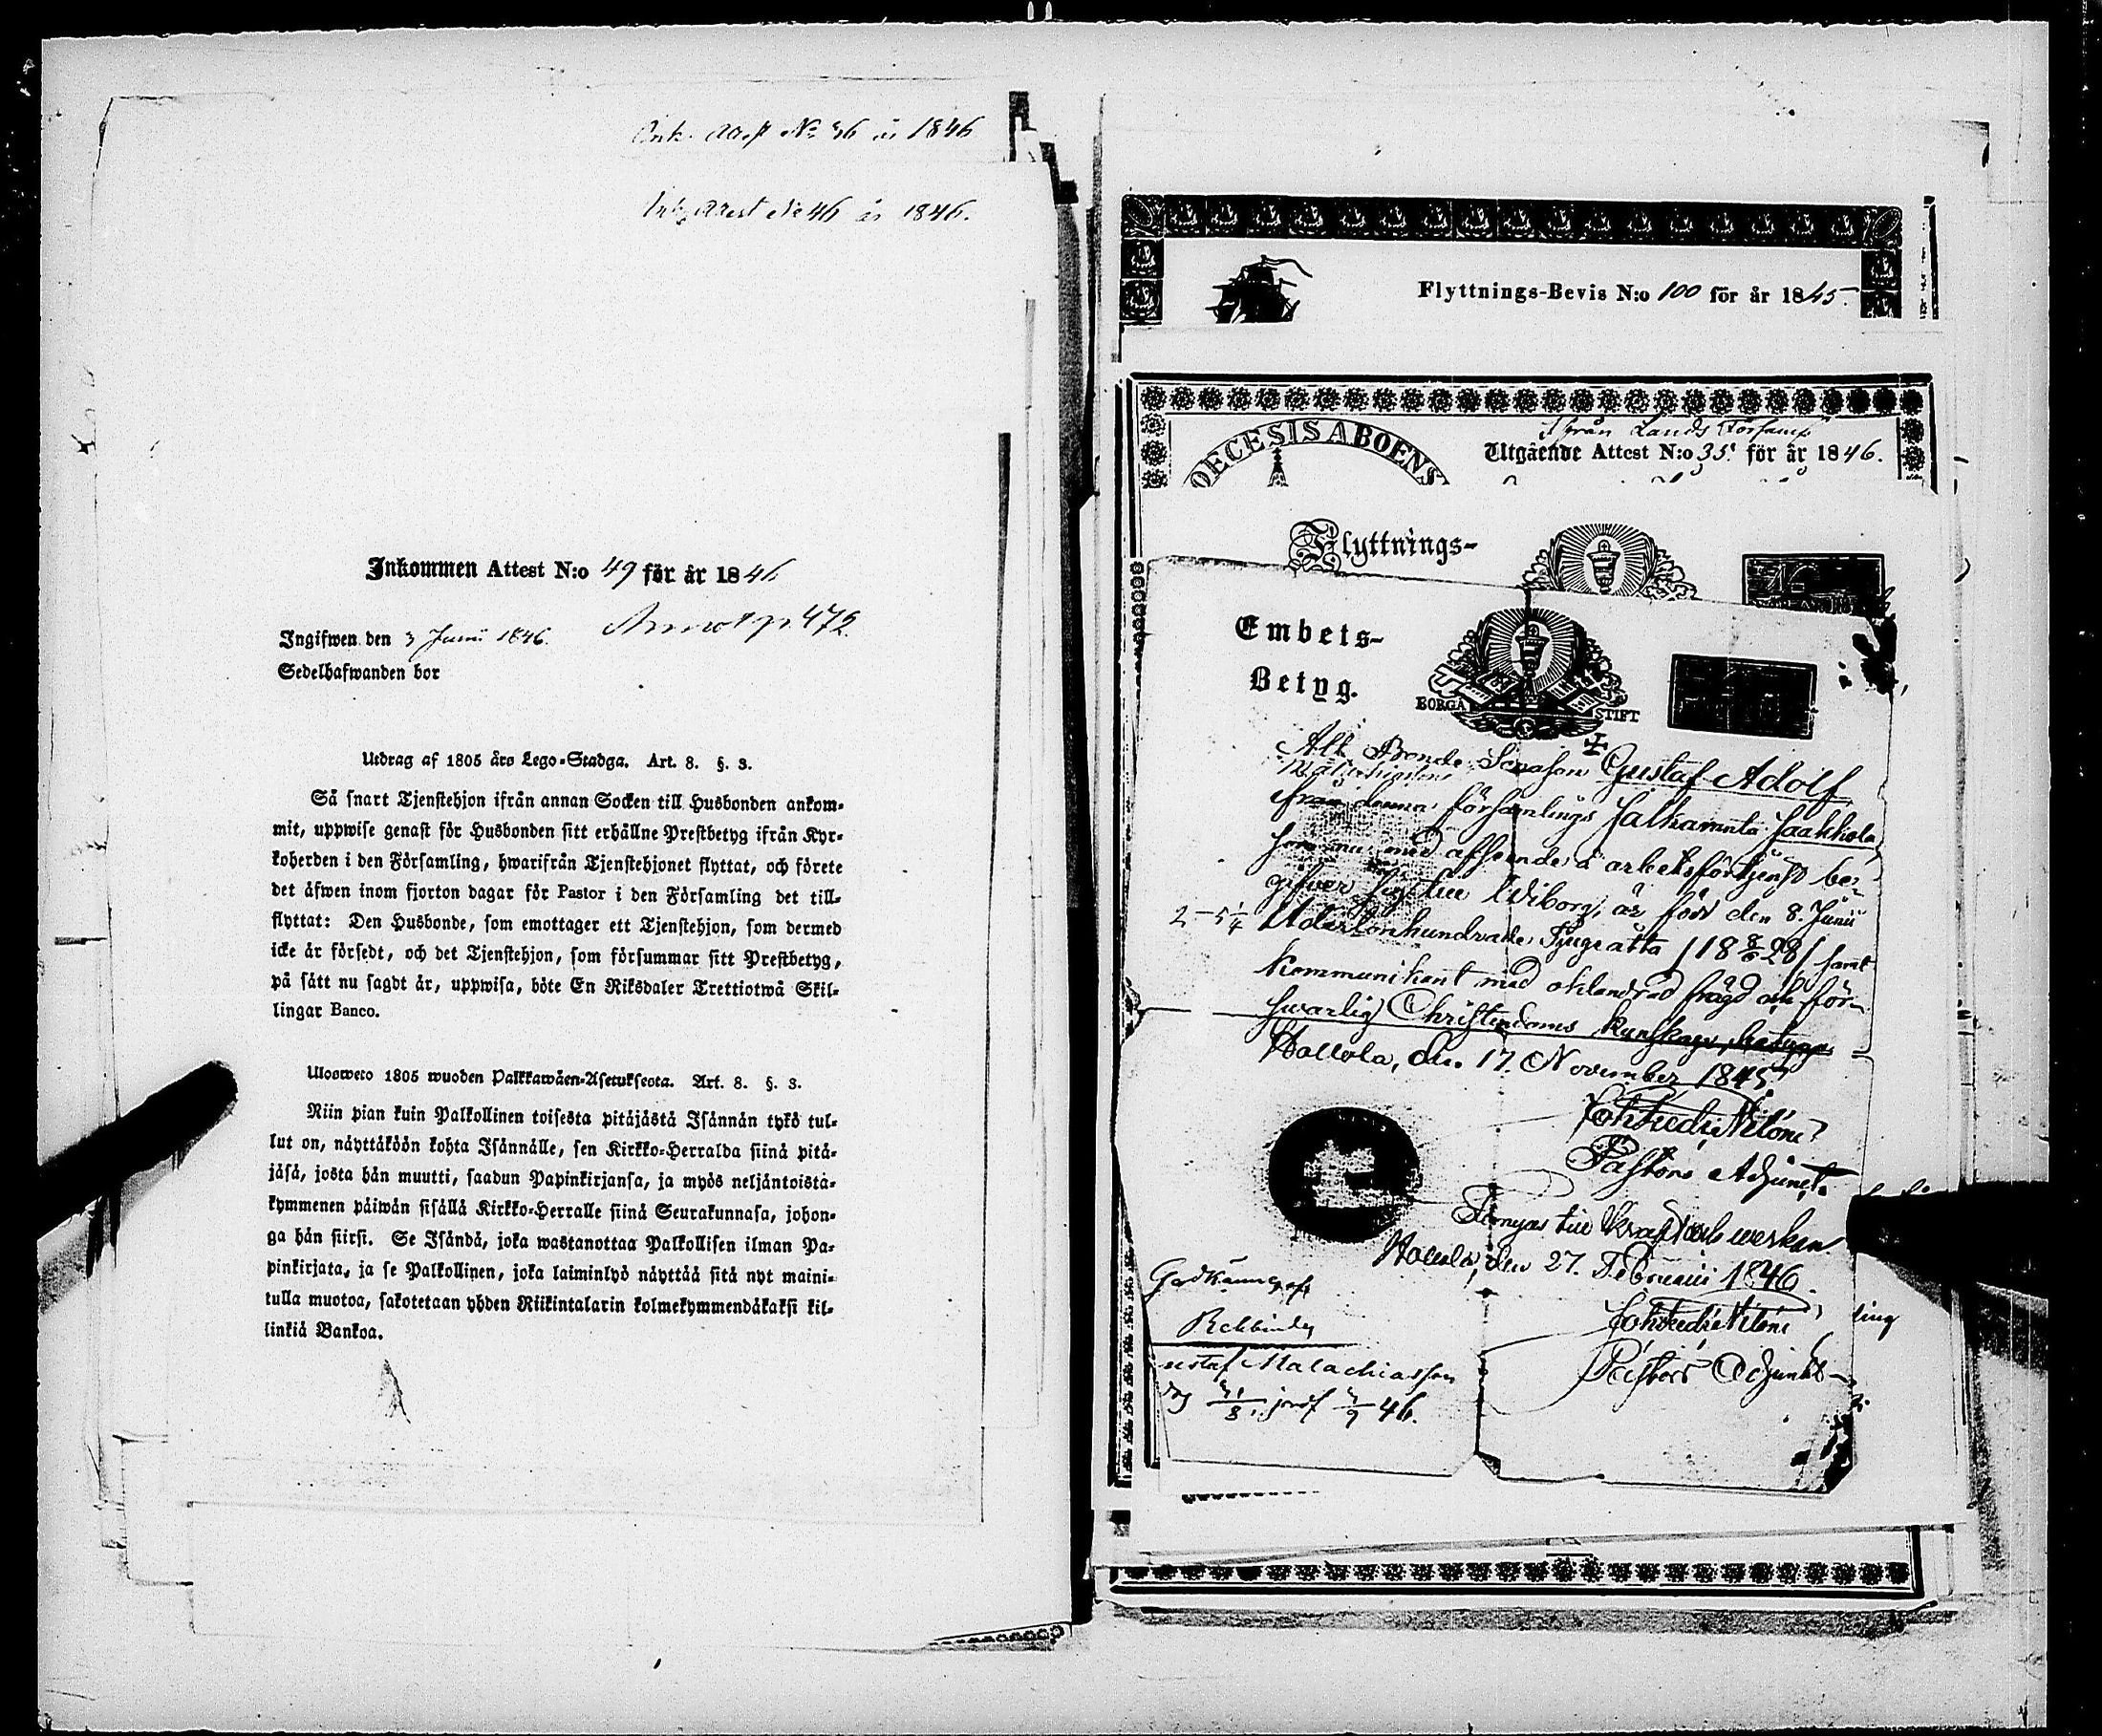 Ink. Attest No 36 år 1846
Ink. Attest No 46 år 1846.
Inkommen Attest N:o 49 för år 1846
Ingifwen den 3 Junii 1846. Annot p. 472.
Sedelhafwanden bor
Utdrag af 1805 års Lego-Stadga. Art. 8. §. 3.
Så snart Tjenstehjon ifrån annan Socken till Husbonden ankom-
mit, uppwise genast för Husbonden sitt erhållne Prestbetyg ifrån Kyr-
koherden i den Församling, hwarifrån Tjenstehjonet flyttat, och förete
det äfwen inom fjorton dagar för Pastor i den Församling det till-
flyttat: Den Husbonde, som emottager ett Tjenstehjon, som dermed
icke är försedt, och det Tjenstehjon, som försummar sitt Prestbetyg,
på sätt nu sagdt är, uppwisa, böte En Riksdaler Trettiotwå Skil-
lingar Banco.
Ulosweto 1805 wuoden Palkkawäen-Asetuksesta. Art. 8. §. 3.
Niin pian kuin Palkollinen toisesta pitäjästä Isännän tykö tul-
lut on, näyttäköön kohta Isännälle, sen Kirkko-Herralda siinä pitä-
jäsä, josta hän muutti, saadun Papinkirjansa, ja myös neljäntoista-
kymmenen päiwän sisällä Kirkko-Herralle siinä Seurakunnasa, johon-
ga hän siirsi. Se Isändä, joka wastanottaa Palkollisen ilman Pa-
pinkirjata, ja se Palkollinen, joka laiminlyö näyttää sitä nyt maini-
tulla muotoa, sakotetaan yhden Riikintalarin kolmekymmendäkaksi kil-
linkiä Bankoa.
Flyttnings-Bevis N:o 100 för år 1845.
Ifrån Lands Församl
DECESIS ABOENS
Utgående Attest N:o 35. för år 1846.
Flyttnings-
Embets-
Betyg.
BORGÅ STIFT
Att Bonde Sonason Gustaf Adolf
ifrån denna församlings Jalkaranta Jaakkola,
som nu med afseende å arbetsförtjenst be-
gifver sig till Wiborg, är född den 8. Junii
2-5 1/4 Adertonhundrade Tjugeåtta /18 8/6 28/ samt
kommunikant med oklandrad frägd och för-
swarlig Christendoms kunskap, betygar
Hollola, den 17. November 1845.
Pastors Adjunct.
Förnyas till kraft och werkan
Hollola, den 27. Februarii 1846.
Godkännes
Rehbinder
Pastors Adjunkt
ling
ustaf Malachiasson
46.